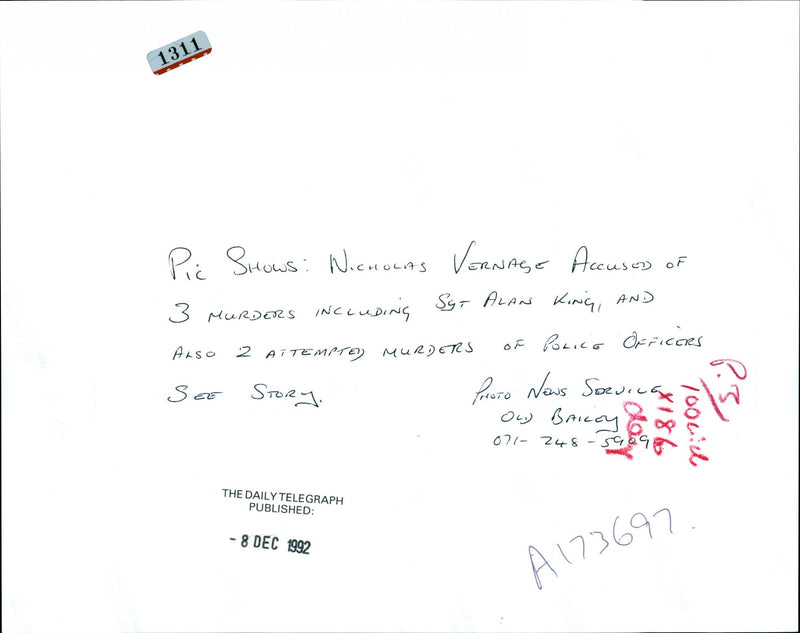 1311
Pic Shows: Nicholas Vernage Accused of
3 murders including Sgt Alan King, and
also 2 attempted murders of Police Officers
See Story.
Photo News Service
Old Bailey
071-248-5909
P.3
100wide
x186
THE DAILY TELEGRAPH
PUBLISHED:
- 8 DEC 1992
A173697.